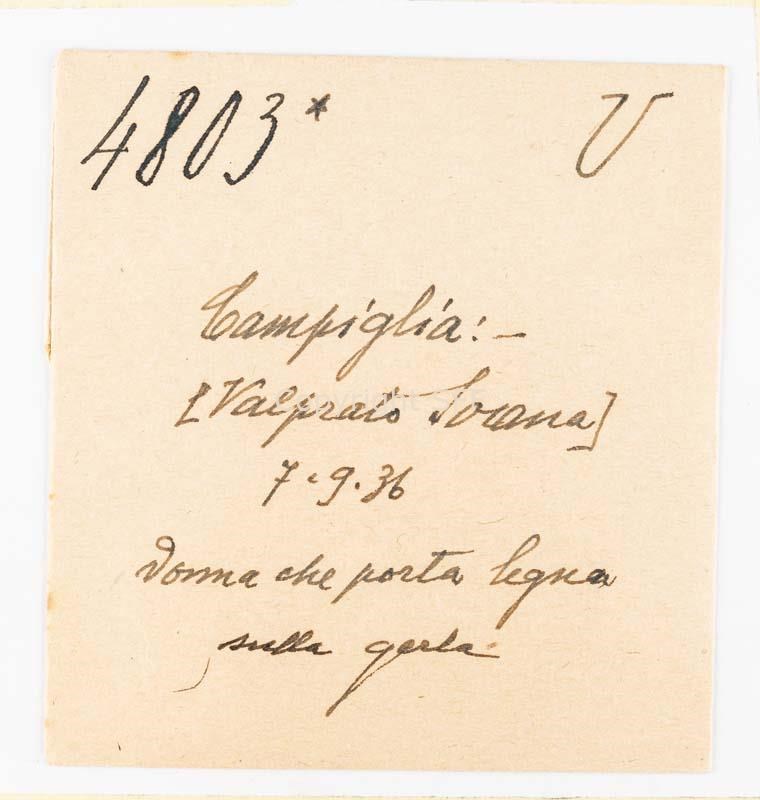 4803* V
Campiglia: -
[Valprato Soana]
7.9.36
donna che porta legna
sulla gerla